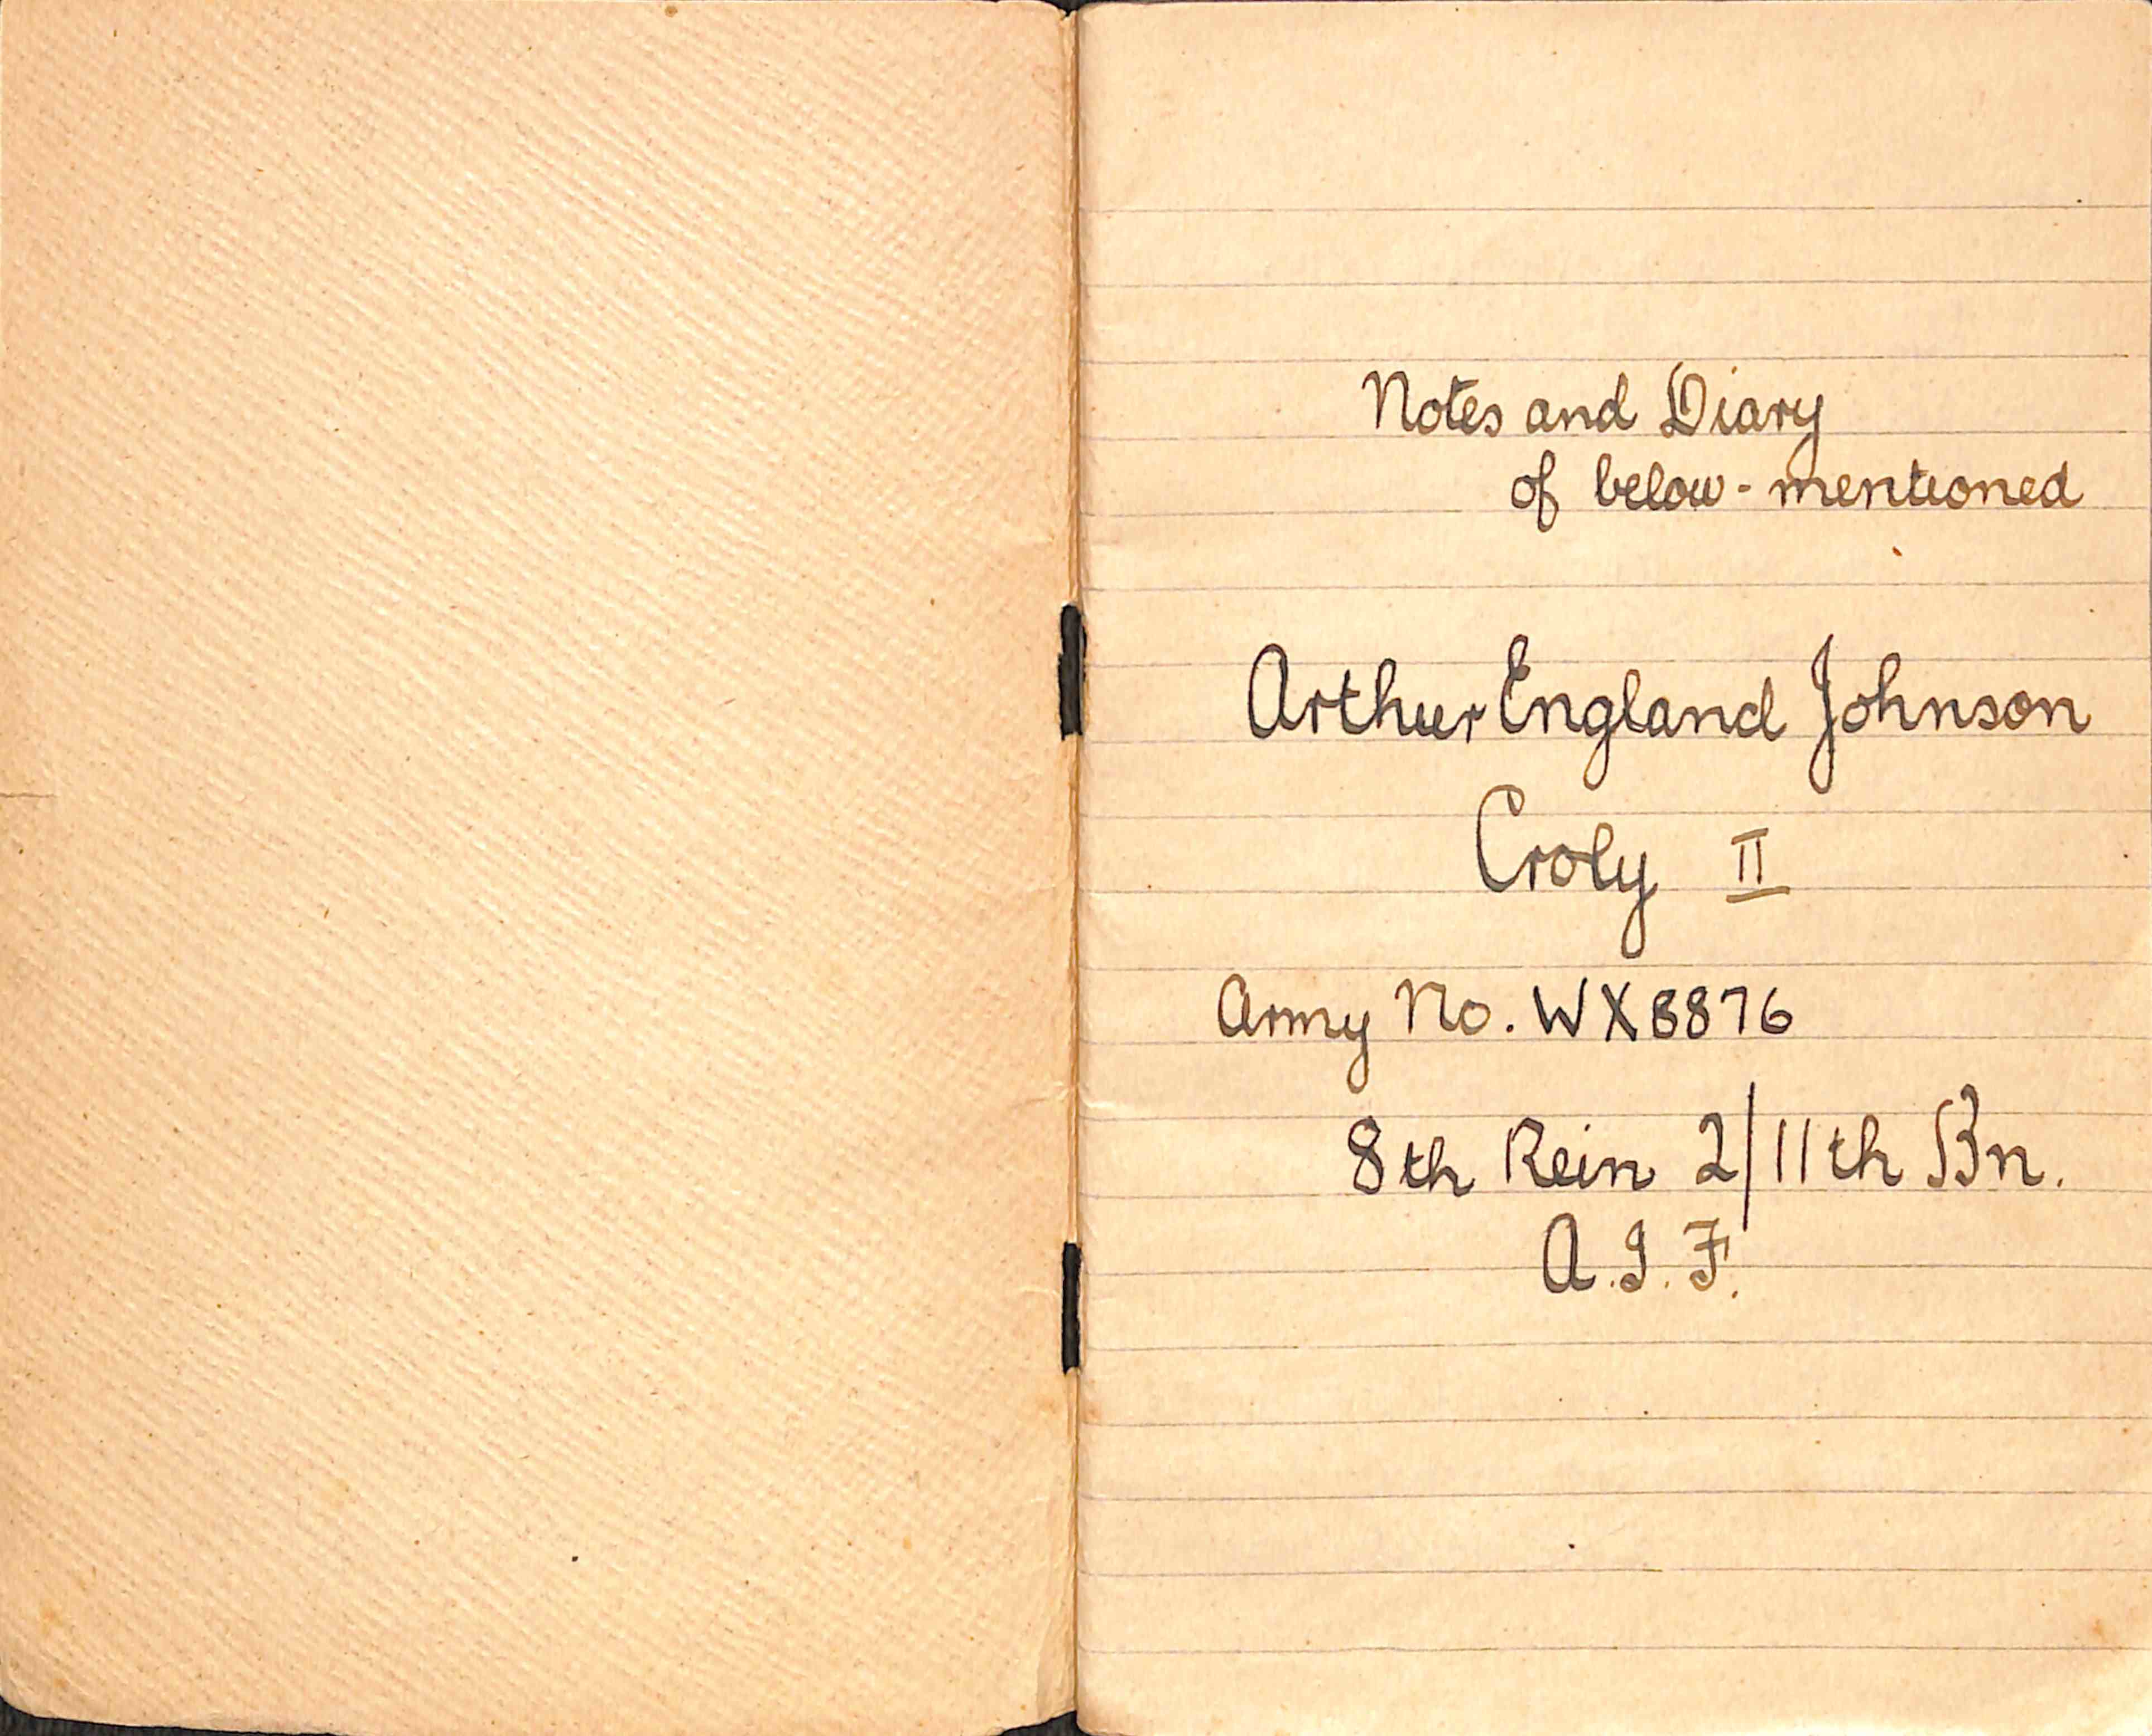 Notes and Diary
of below-mentioned
Arthur England Johnson
Croly II
Army No. WX8876
8th Rein 2/11th Bn.
A.I.F.